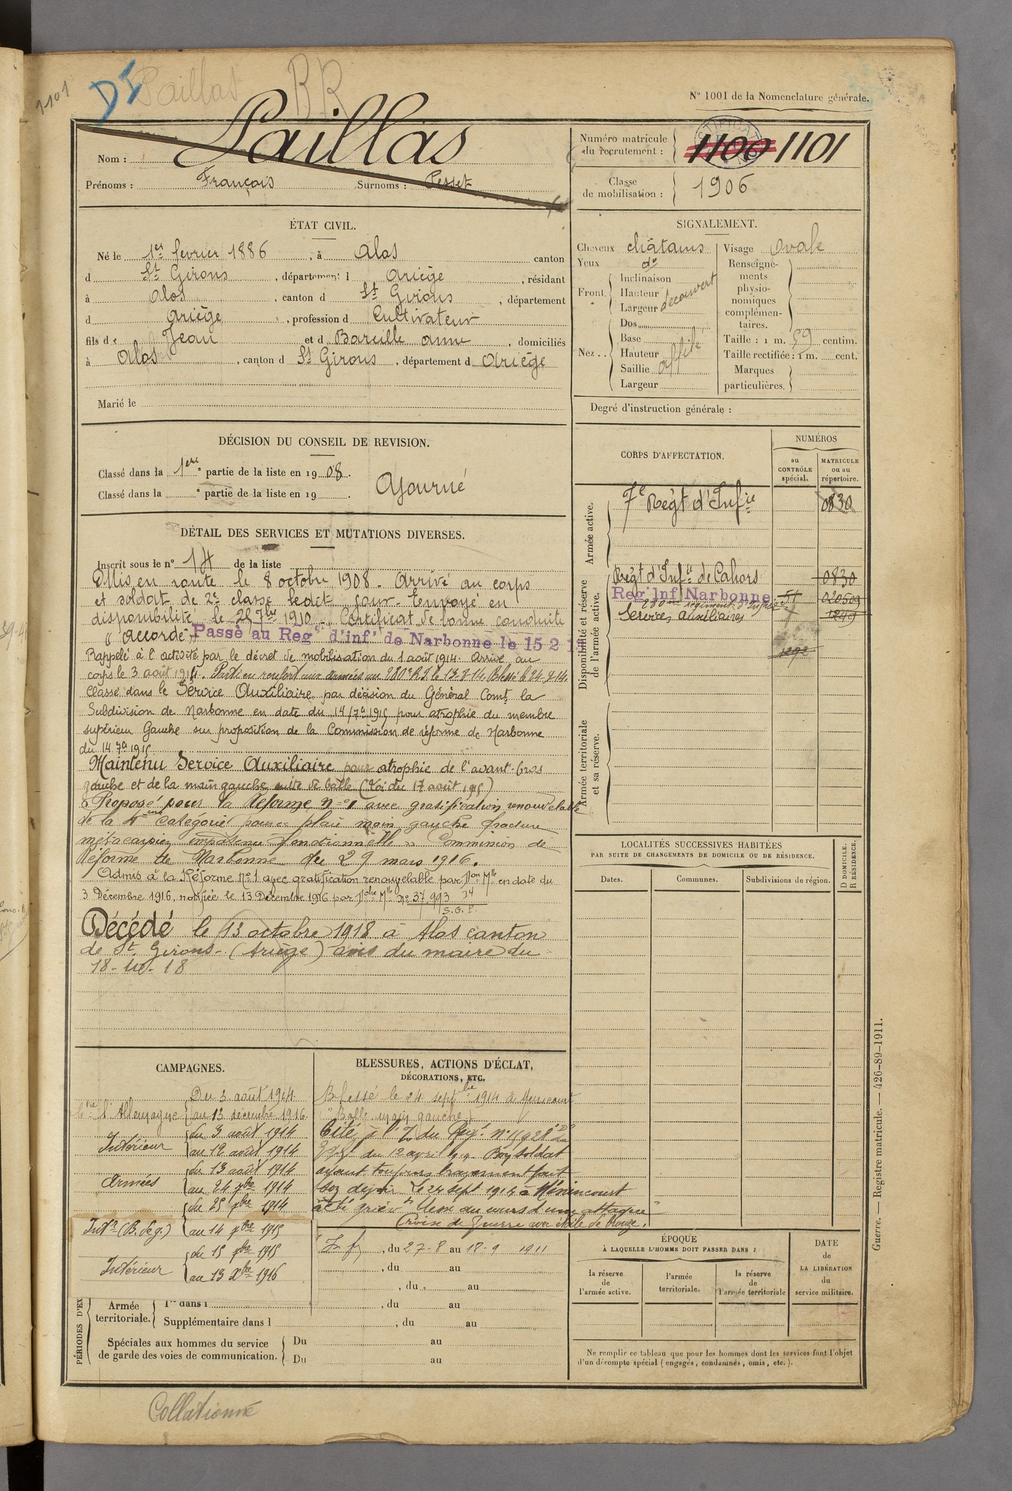 1101
DI
Paillas
BR
N° 1001 de la Nomenclature générale.
Nom : Paillas
Prénoms : François Surnoms : Pesset
Numéro matricule du recrutement : 1100 1101
Classe de mobilisation : 1906
ÉTAT CIVIL.
Né le 1er février 1886, à Alos canton
d St Girons, département d Ariège, résidant
à Alos, canton d St Girons, département
d Ariège, profession d Cultivateur
fils de Jean et d Bareille Anne, domiciliés
à Alos, canton d St Girons, département d Ariège
Marié le
SIGNALEMENT.
Cheveux châtains
Yeux do
Front. Inclinaison
Hauteur découvert
Largeur
Nez .. Dos
Base
Hauteur
Saillie
Largeur
Visage ovale
Renseignements physionomiques complémentaires.
Taille : 1 m. 59 centim.
Taille rectifiée : 1 m. cent.
Marques particulières.
Degré d'instruction générale :
DÉCISION DU CONSEIL DE REVISION.
Classé dans la 1ere partie de la liste en 1908.
Classé dans la e partie de la liste en 19 .
Ajourné
DÉTAIL DES SERVICES ET MUTATIONS DIVERSES.
Inscrit sous le n° 14 de la liste
Mis en route le 8 octobre 1908. Arrivé au corps
et soldat de 2e classe ledit jour. Envoyé en
disponibilité le 25 7bre 1910. Certificat de bonne conduite
"accordé". Passé au Regt d'inft de Narbonne le 15 2 1
Rappelé à l'activité par le décret de mobilisation du 1 août 1914. Arrivé au
corps le 3 août 1914. Parti en renfort aux armées au 280e R.I. le 13.8.14. Blessé le 24.9.14
Classé dans le Service Auxiliaire par décision du Général Comt la
Subdivision de Narbonne en date du 14/7bre 1915 pour atrophie du membre
supérieur Gauche sur proposition de la Commission de réforme de Narbonne
du 14 7bre 1915
Maintenu Service Auxiliaire pour atrophie de l'avant-bras
gauche et de la main gauche, suite de balle (Loi du 17 août 1915)
Proposé pour la Réforme n° 1 avec gratification renouvelable
de la 4eme catégorie pour plaie main gauche fracture
métacarpien impotence fonctionnelle. Commission de
Réforme de Narbonne du 29 mars 1916.
Admis à la Réforme N°1 avec gratification renouvelable par Don Mlle en date du
3 Décembre 1916, notifiée le 13 Décembre 1916 par Note Mlle N° 37.993 34
S.G.P.
Décédé le 13 octobre 1918 à Alos canton
de St Girons (Ariège) avis du maire du
18-10-18
CORPS D'AFFECTATION.
NUMÉROS
au CONTRÔLE spécial.
MATRICULE ou au répertoire.
Armée active.
7e Regt d'Infie 0830
Disponibilité et réserve de l'armée active.
Regt d'Infie de Cahors 0830
Reg Inf Narbonne
Services auxiliaires
Armée territoriale et sa réserve.
LOCALITÉS SUCCESSIVES HABITÉES
PAR SUITE DE CHANGEMENTS DE DOMICILE OU DE RÉSIDENCE.
Dates. Communes. Subdivisions de région.
D DOMICILE.
R RÉSIDENCE.
CAMPAGNES.
Cne c. l'Allemagne Du 3 août 1914
au 13 décembre 1916.
Intérieur du 3 août 1914
au 12 août 1914
Armées du 13 août 1914
au 24 7bre 1914
du 25 7bre 1914
Intr (B. de g.) au 14 7bre 1915
du 15 7bre 1915
Intérieur au 13 Xbre 1916
BLESSURES, ACTIONS D'ÉCLAT,
DÉCORATIONS, ETC.
Blessé le 24 septbre 1914 à
"Balle main gauche"
Cité à l'O/ du Régt
du 12 avril Bon soldat
ayant toujours bravement fait
son devoir. Le 24 sept 1914 à
a été grièvt blessé au cours d'une attaque
Croix de Guerre avec étoile de bronze.
PÉRIODES D'EX
Inf, du 27-8 au 18-9 1911
, du au
, du au
Armée territoriale. 1re dans l , du au
Supplémentaire dans l , du au
Spéciales aux hommes du service de garde des voies de communication. Du au
Du au
ÉPOQUE
À LAQUELLE L'HOMME DOIT PASSER DANS :
la réserve de l'armée active.
l'armée territoriale.
la réserve de l'armée territoriale
DATE de LA LIBÉRATION du service militaire.
Ne remplir ce tableau que pour les hommes dont les services font l'objet
d'un décompte spécial (engagés, condamnés, omis, etc.).
Guerre. — Registre matricule. — 426-89-1911.
Collationné